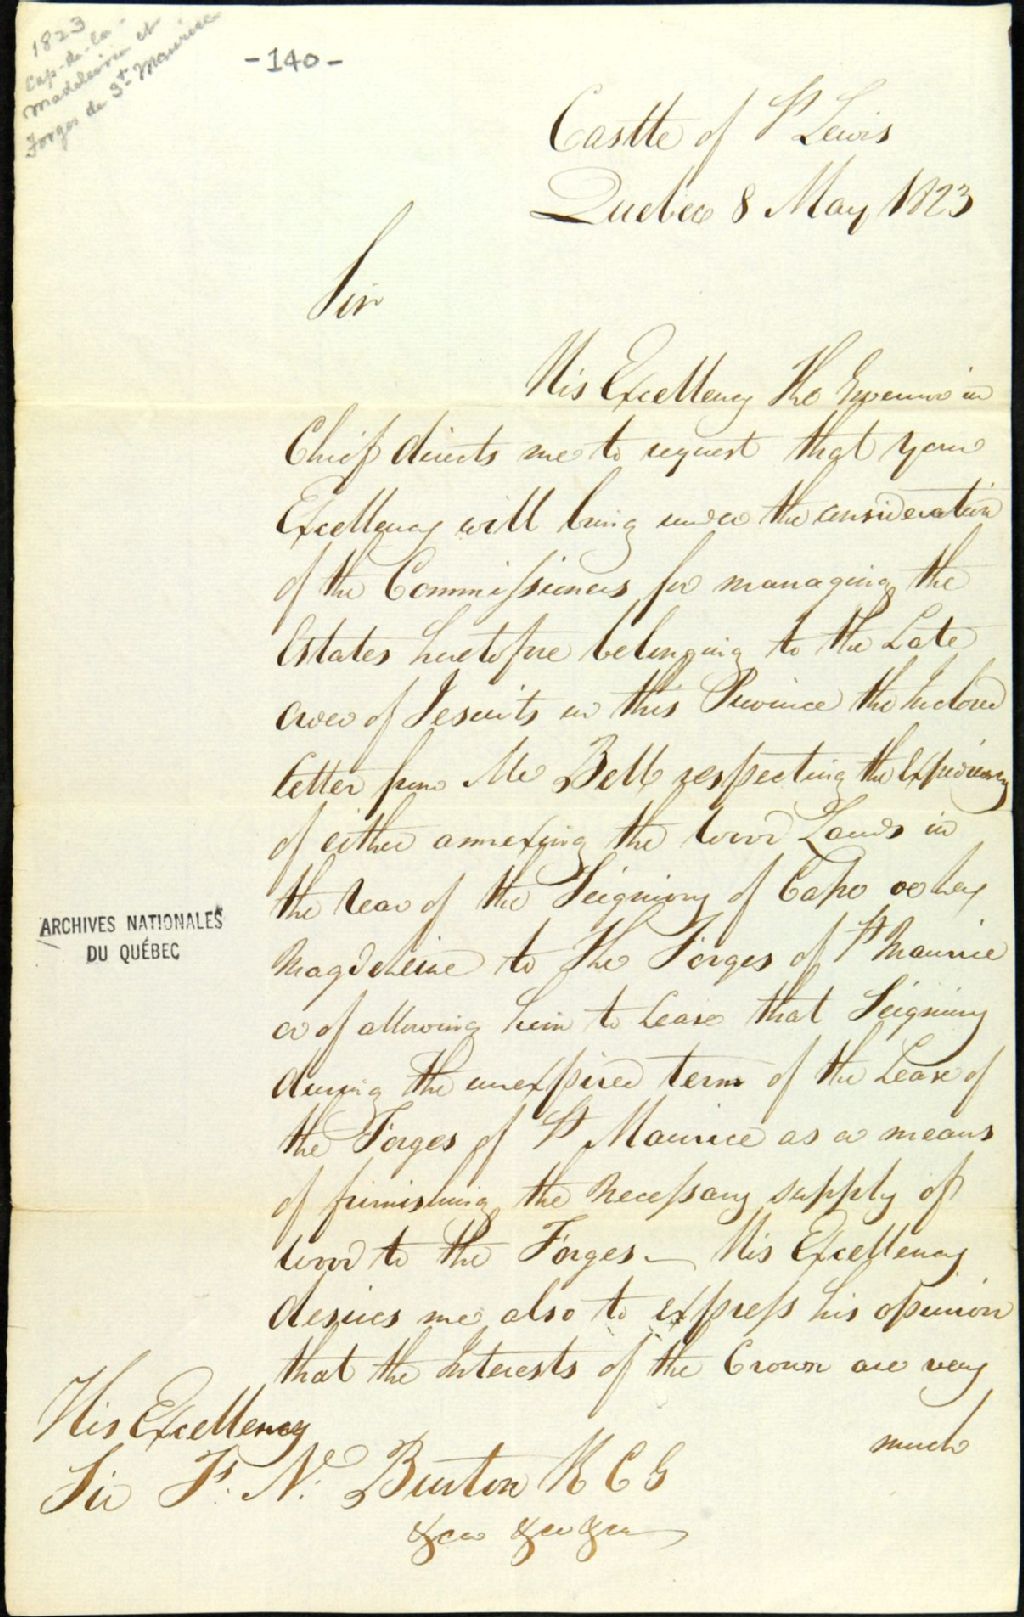 1823
Cap-de-la-
Madeleine et
Forges de St Maurice
-140-
Castle of St Lewis
Quebec 8 May 1823
Sir
His Excellency The Governor in
Chief directs me to request that your
Excellency will bring under the consideration
of the Commissioners for managing the
Estates heretofore belonging to the Late
order of Jesuits in this Province the Inclosed
letter from Mr Bell respecting the Expediency
of either annexing the wood Lands in
the rear of the Seigniory of Cape de la
Magdeleine to the Forges of St Maurice
or of allowing him to Lease that Seigniory
during the unexpired term of the Lease of
the Forges of St Maurice as a means
of furnishing the necessary supply of
wood to the Forges — His Excellency
desires me also to express his opinion
that the Interests of the Crown are very
much
His Excellency
Sir F. N. Burton K C G
&ca &ca &ca
ARCHIVES NATIONALES
DU QUÉBEC